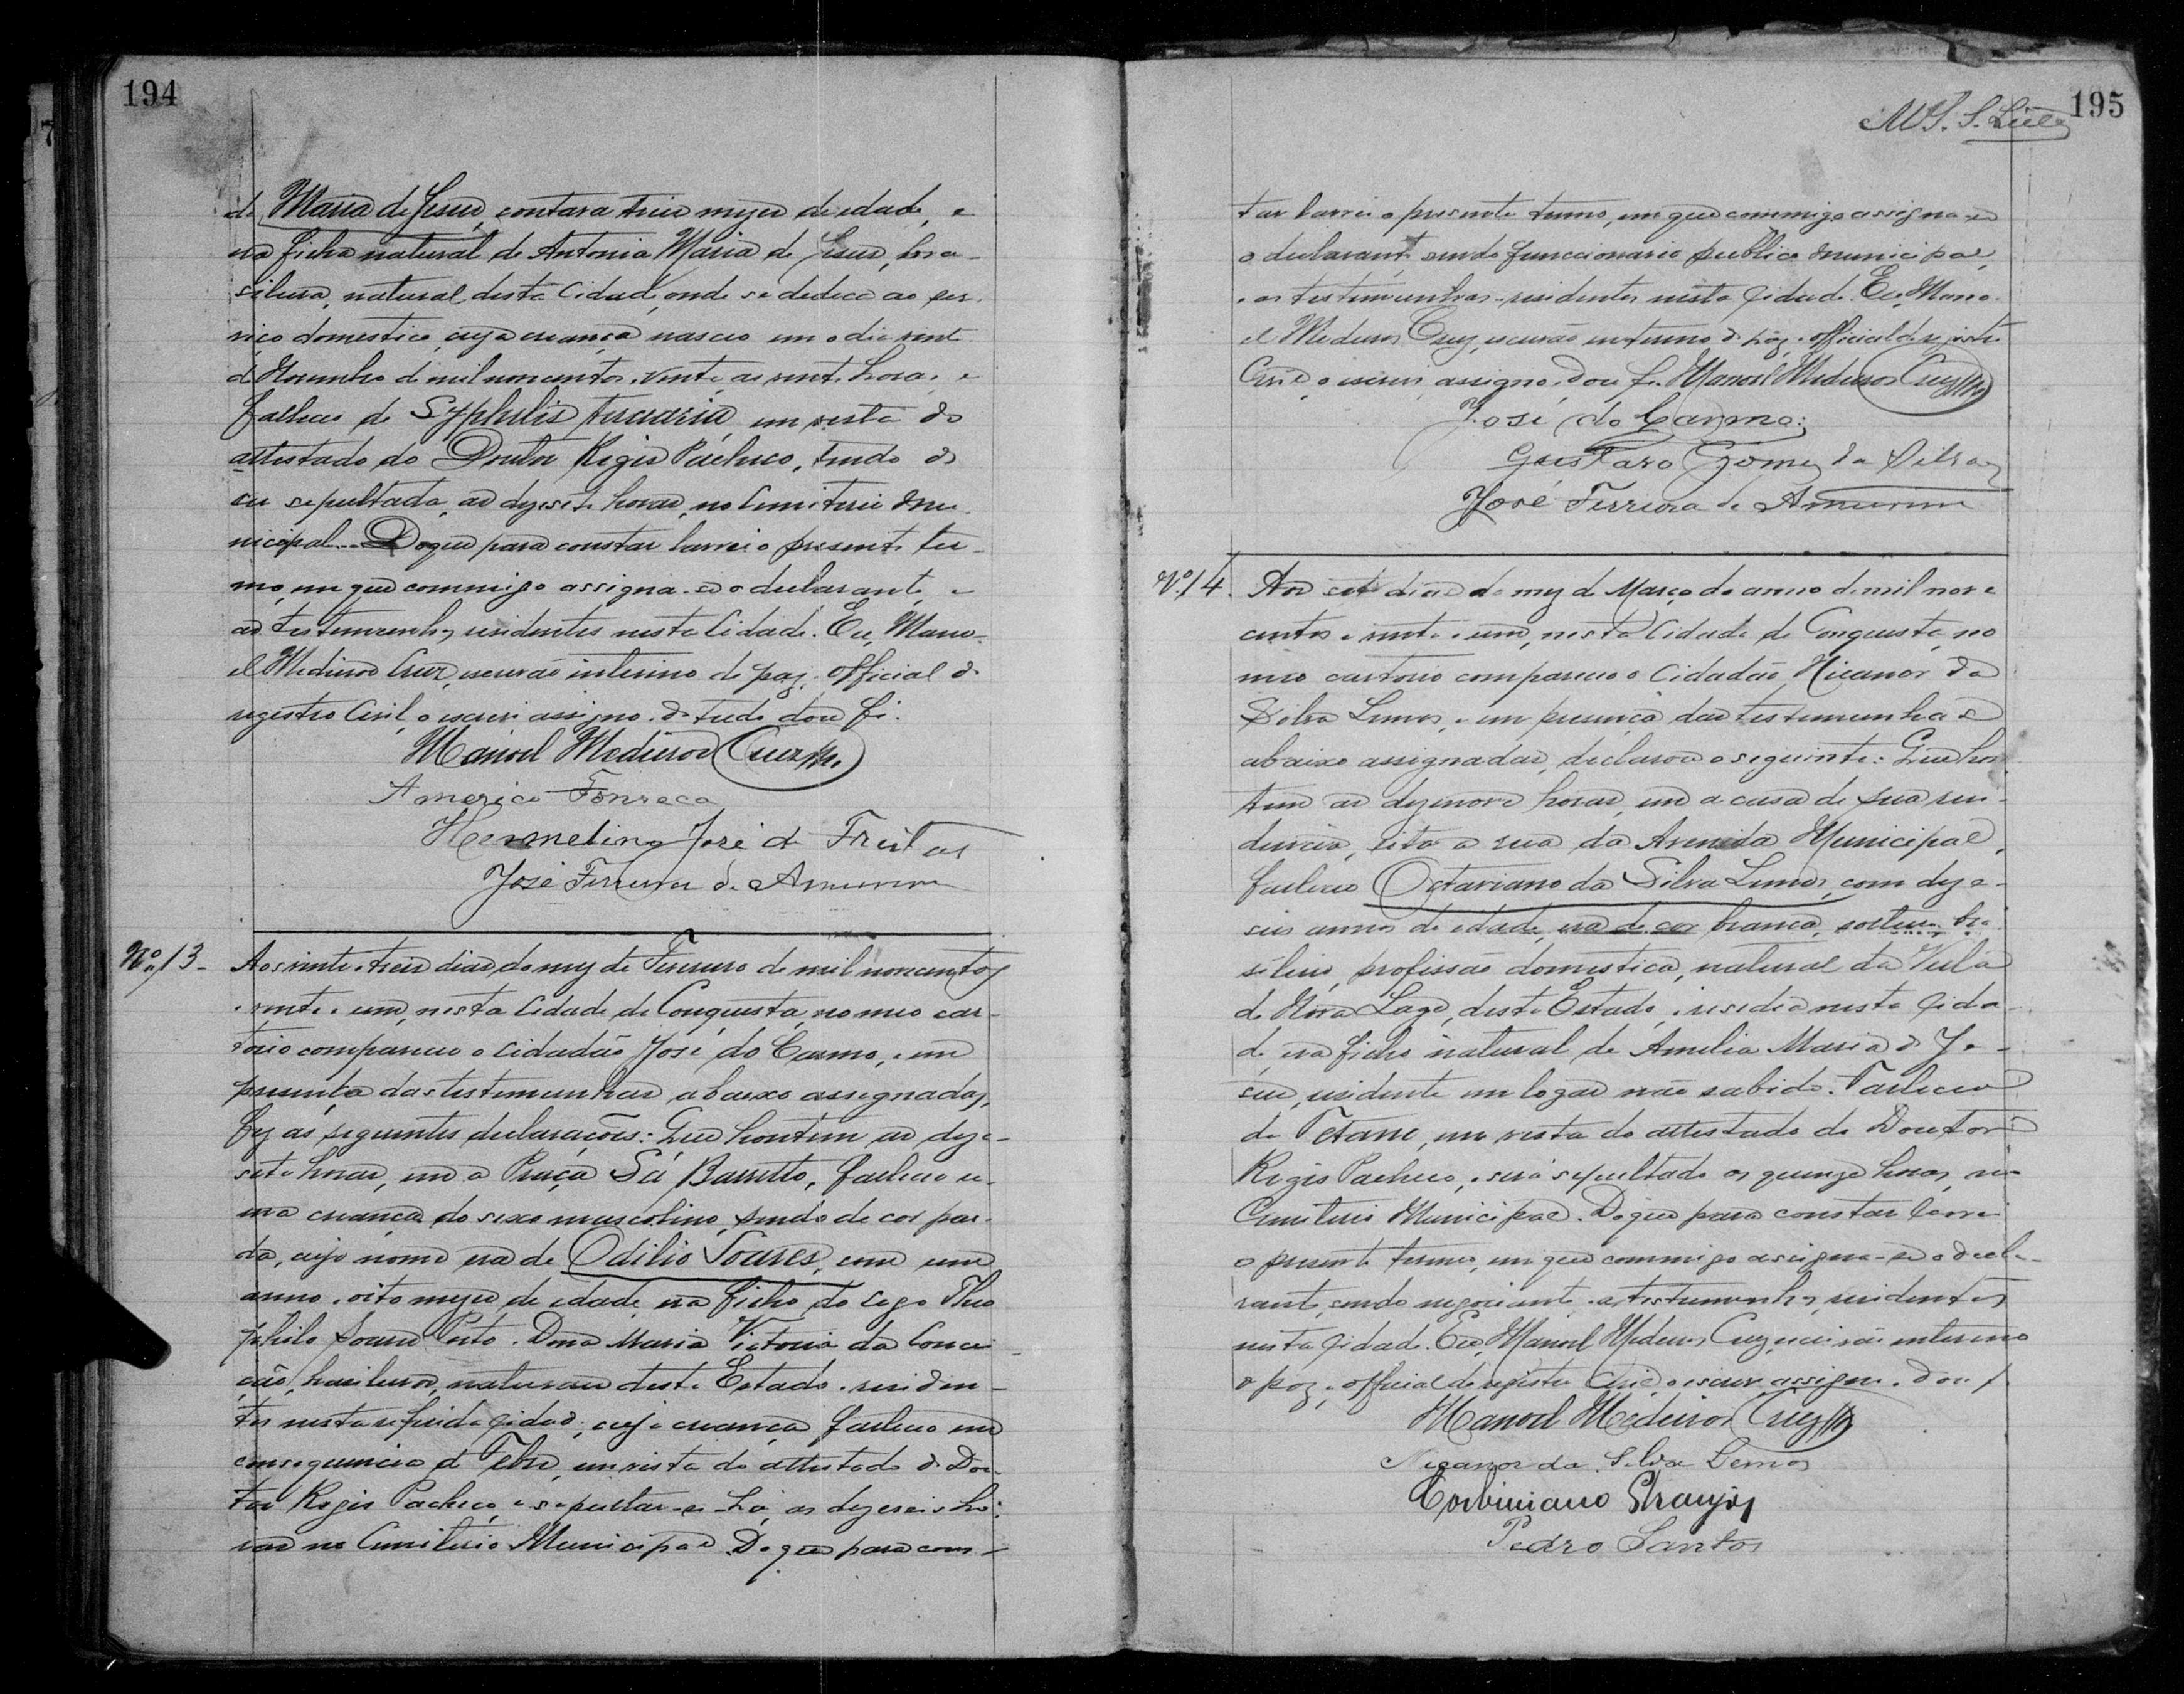 194
de Maria de Jesus, contava treis mezes de edade, e
era filha natural de Antonia Maria de Jesus, bra-
sileira, natural desta Cidade, onde se dedica ao ser-
viço domestico, cuja creança nasceu em o dia vinte
de Novembro de mil novecentos e vinte, as vinte horas, e
falleceu de Syphilis terciaria, em vista do
attestado do Doutor Regis Pacheco, tendo de
ser sepultada, as dezesete horas, no Cemiterio Mu-
nicipal. Do que para constar lavrei o presente ter-
mo, em que commigo assigna-se o declarante, e
as testemunhas residentes nesta Cidade. Eu, Mano-
el Medeiros Cruz, escrivão interino de paz e official do
registro Civil, o escrevi assigno. De tudo dou fé.
Manoel Medeiros Cruz
Americo Fonseca
Hermelino José de Freitas
José Ferreira de Amorim
Nº 13 - Aos vinte e treis dias do mez de Fevereiro de mil novecentos
e vinte e um, nesta Cidade de Conquista, no meo car-
torio compareceu o Cidadão José do Carmo, e em
presença das testemunhas abaixo assignadas,
fez as seguintes declarações: Que hontem as deze-
sete horas, em a Praça Sá Barretto, falleceu u-
ma creança do sexo masculino, sendo de cor par-
da, cujo nome era de Odilio Soares, com um
anno e oito mezes de edade, era filho do cego Theo
philo Soares Porto e Dona Maria Victoria da Concei-
ção, brasileiros, naturaes deste Estado e residen-
tes nesta referida Cidade, cuja creança falleceu em
consequencia de Febre, em vista do attestado do Dou-
tor Regis Pacheco, e sepultar-se-há, as dezeseis ho-
ras no Cemiterio Municipal. Do que para cons-
195
tar lavrei o presente termo, em que commigo assigna-se
o declarante sendo funccionario publico municipal,
e as testemunhas residentes nesta Cidade. Eu, Mano-
el Medeiros Cruz, escrivão interino de paz e official do registro
Civil, o escrevi assigno. Dou fé. Manoel Medeiros Cruz
José do Carmo
Gustavo Gomes da Silva
José Ferreira de Amorim
Nº 14. Aos sete dias do mez de Março do anno de mil nove
centos e vinte e um, nesta Cidade de Conquista, no
meo cartorio compareceu o Cidadão Nicanor da
Silva Lemos, e em presença das testemunhas
abaixo assignadas, declarou o seguinte: Que hon
tem as dezenove horas, em a casa de sua resi-
dencia, sita a rua da Avenida Municipal,
falleceu Octaviano da Silva Lemos, com deze-
seis annos de edade, era de cor branca, solteiro, bra-
sileiro, profissão domestica, natural da Villa
de Nova Lage, deste Estado, e residia nesta Cida-
de, era filho natural de Amelia Maria de Je-
sus, residente em logar não sabido. Falleceu
de Tetano, em vista do attestado do Doutor
Regis Pacheco, e será sepultado as quinze horas, no
Cemiterio Municipal. Do que para constar lavrei
o presente termo, em que commigo assigna-se o decla-
rante, sendo negociante e as testemunhas, residentes
nesta Cidade. Eu, Manoel Medeiros Cruz, escrivão interino
de paz, e official do registro Civil, o escrevi assigno. Dou f
Manoel Medeiros Cruz
Nicanor da Silva Lemos
Corbiniano
Pedro Santos